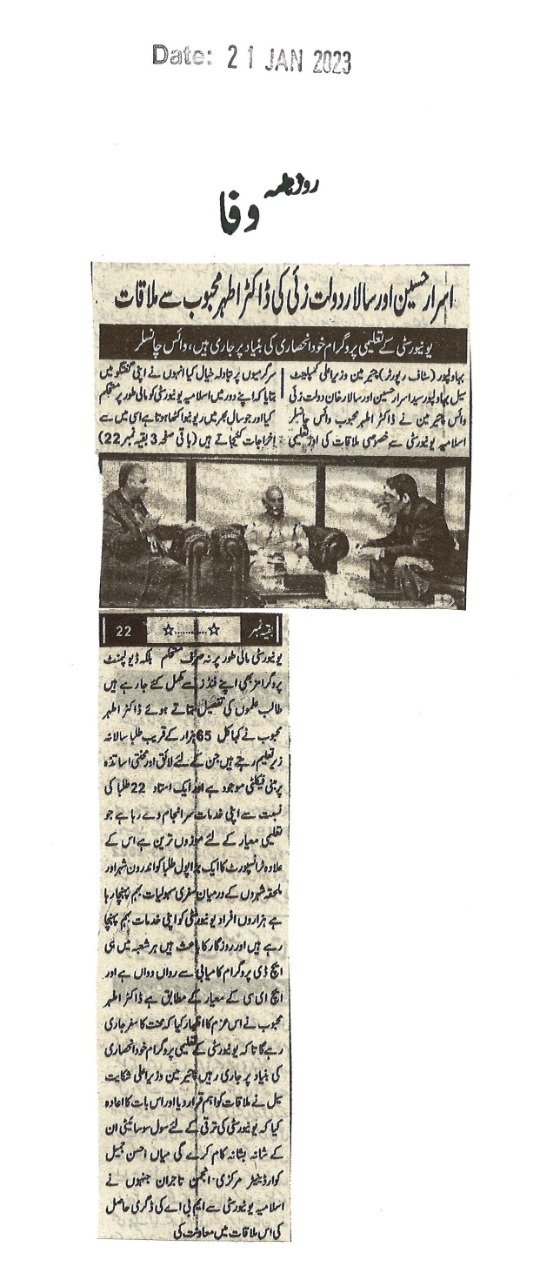 Date: 21 JAN 2023
روزنامہ
وفا
اسرار حسین اور سالار دولت زئی کی ڈاکٹر اطہر محبوب سے ملاقات
یونیورسٹی کے تعلیمی پروگرام خود انحصاری کی بنیاد پر جاری ہیں، وائس چانسلر
بہاولپور (سٹاف رپورٹر) چیئرمین وزیراعلی کمپلینٹ
سیل بہاولپور سید اسرار حسین اور سالار خان دولت زئی
وائس چیئرمین نے ڈاکٹر اطہر محبوب وائس چانسلر
اسلامیہ یونیورسٹی سے خصوصی ملاقات کی اور تعلیمی
سرگرمیوں پر تبادلہ خیال کیا انہوں نے اپنی گفتگو میں
بتایا کہ اپنے دور میں اسلامیہ یونیورسٹی کو مالی طور پر مستحکم
کیا اور جو سال بھر میں ریونیو اکٹھا ہوتا ہے اسی میں سے
اخراجات کئے جاتے ہیں (باقی صفحہ 3 بقیہ نمبر 22)
بقیہ نمبر 22
یونیورسٹی مالی طور پر نہ صرف مستحکم بلکہ ڈیولپمنٹ
پروگرامز بھی اپنے فنڈز سے مکمل کئے جا رہے ہیں
طالب علموں کی تفصیل بتاتے ہوئے ڈاکٹر اطہر
محبوب نے کہا کل 65 ہزار کے قریب طلبا سالانہ
زیر تعلیم رہتے ہیں جن کے لئے لائق اور محنتی اساتذہ
پر مبنی فیکلٹی موجود ہے اور ایک استاد 22 طلبا کی
نسبت سے اپنی خدمات سرانجام دے رہا ہے جو
تعلیمی معیار کے لئے موزوں ترین ہے اس کے
علاوہ ٹرانسپورٹ کا ایک بڑا پول طلبا کو اندرون شہر اور
ملحقہ شہروں کے درمیان سفری سہولیات بہم پہنچا رہا
ہے ہزاروں افراد یونیورسٹی کو اپنی خدمات بہم پہنچا
رہے ہیں اور روزگار کا باعث ہیں ہر شعبہ میں پی
ایچ ڈی پروگرام کامیابی سے رواں دواں ہے اور
ایچ ای سی کے معیار کے مطابق ہے ڈاکٹر اطہر
محبوب نے اس عزم کا اظہار کیا کہ محنت کا سفر جاری
رہے گا تا کہ یونیورسٹی کے تعلیمی پروگرام خود انحصاری
کی بنیاد پر جاری رہیں چیئرمین وزیراعلی شکایت
سیل نے ملاقات کو اہم قرار دیا اور اس بات کا اعادہ
کیا کہ یونیورسٹی کی ترقی کے لئے سول سوسائیٹی ان
کے شانہ بشانہ کام کرے گی میاں احسن جمیل
کوارڈینیٹر مرکزی انجمن تاجران جنہوں نے
اسلامیہ یونیورسٹی سے ایم بی اے کی ڈگری حاصل
کی اس ملاقات میں معاونت کی